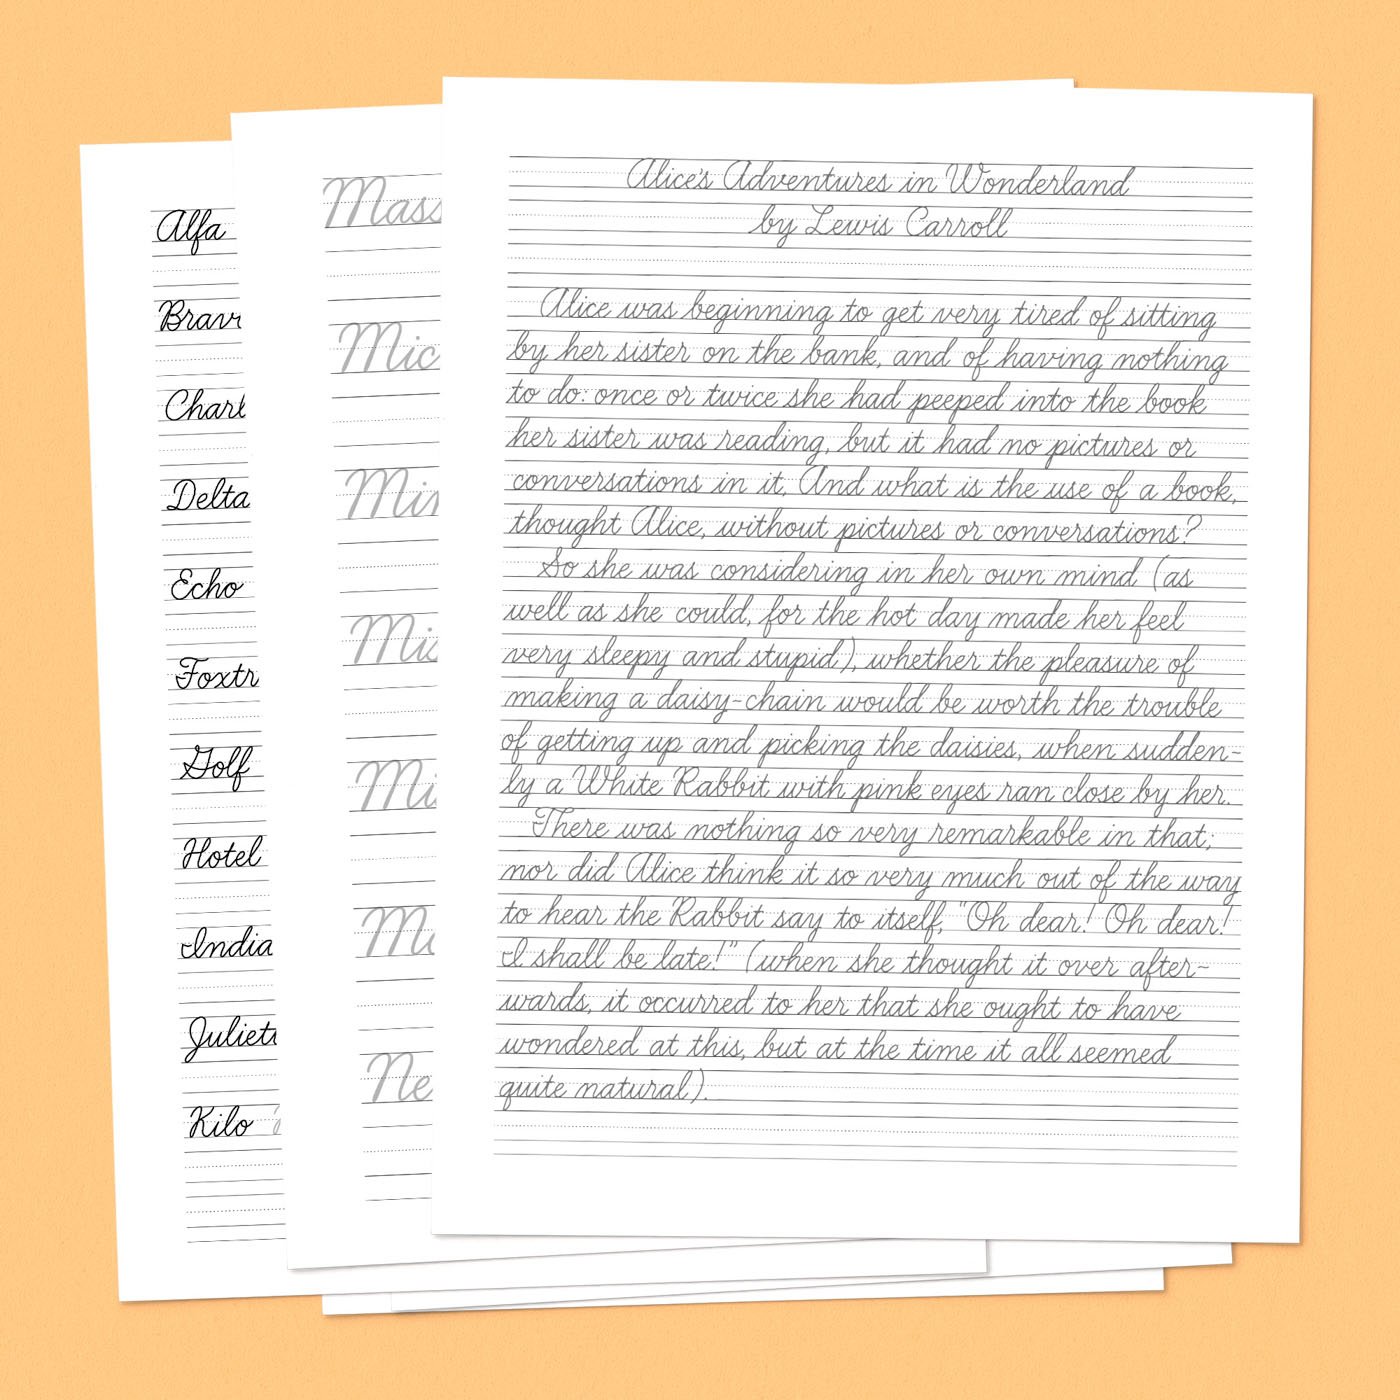 Alfa
Brav
Charl
Delta
Echo
Foxtr
Golf
Hotel
India
Juliett
Kilo
Mass
Mic
Min
Mis
Mi
Mo
Ne
Alice's Adventures in Wonderland
by Lewis Carroll
Alice was beginning to get very tired of sitting
by her sister on the bank, and of having nothing
to do: once or twice she had peeped into the book
her sister was reading, but it had no pictures or
conversations in it, And what is the use of a book,
thought Alice, without pictures or conversations?
So she was considering in her own mind (as
well as she could, for the hot day made her feel
very sleepy and stupid), whether the pleasure of
making a daisy-chain would be worth the trouble
of getting up and picking the daisies, when sudden-
ly a White Rabbit with pink eyes ran close by her.
There was nothing so very remarkable in that;
nor did Alice think it so very much out of the way
to hear the Rabbit say to itself, "Oh dear! Oh dear!
I shall be late!" (when she thought it over after-
wards, it occurred to her that she ought to have
wondered at this, but at the time it all seemed
quite natural).